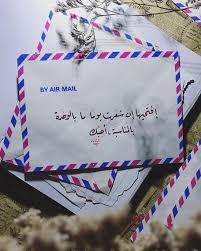 BY AIR MAIL
إفتحيها إن شعرت يوما ما بالوحدة
بالمناسبة، أحبك